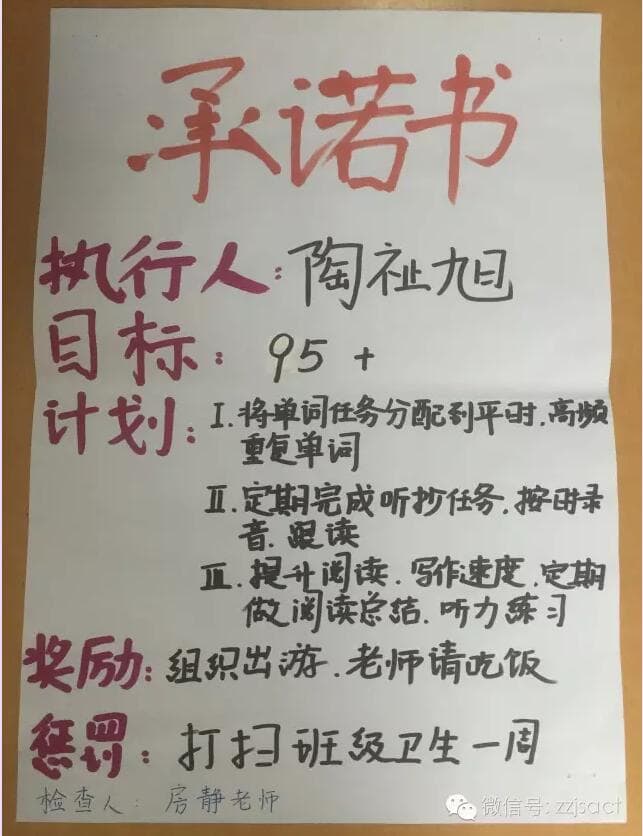 承诺书
执行人：陶祉旭
目标：95 +
计划：I. 将单词任务分配到平时.高频
重复单词
II. 定期完成听抄任务.按时录
音.跟读
III. 提升阅读.写作速度.定期
做阅读总结.听力练习
奖励：组织出游.老师请吃饭
惩罚：打扫班级卫生一周
检查人：房静老师
微信号: zzjsact